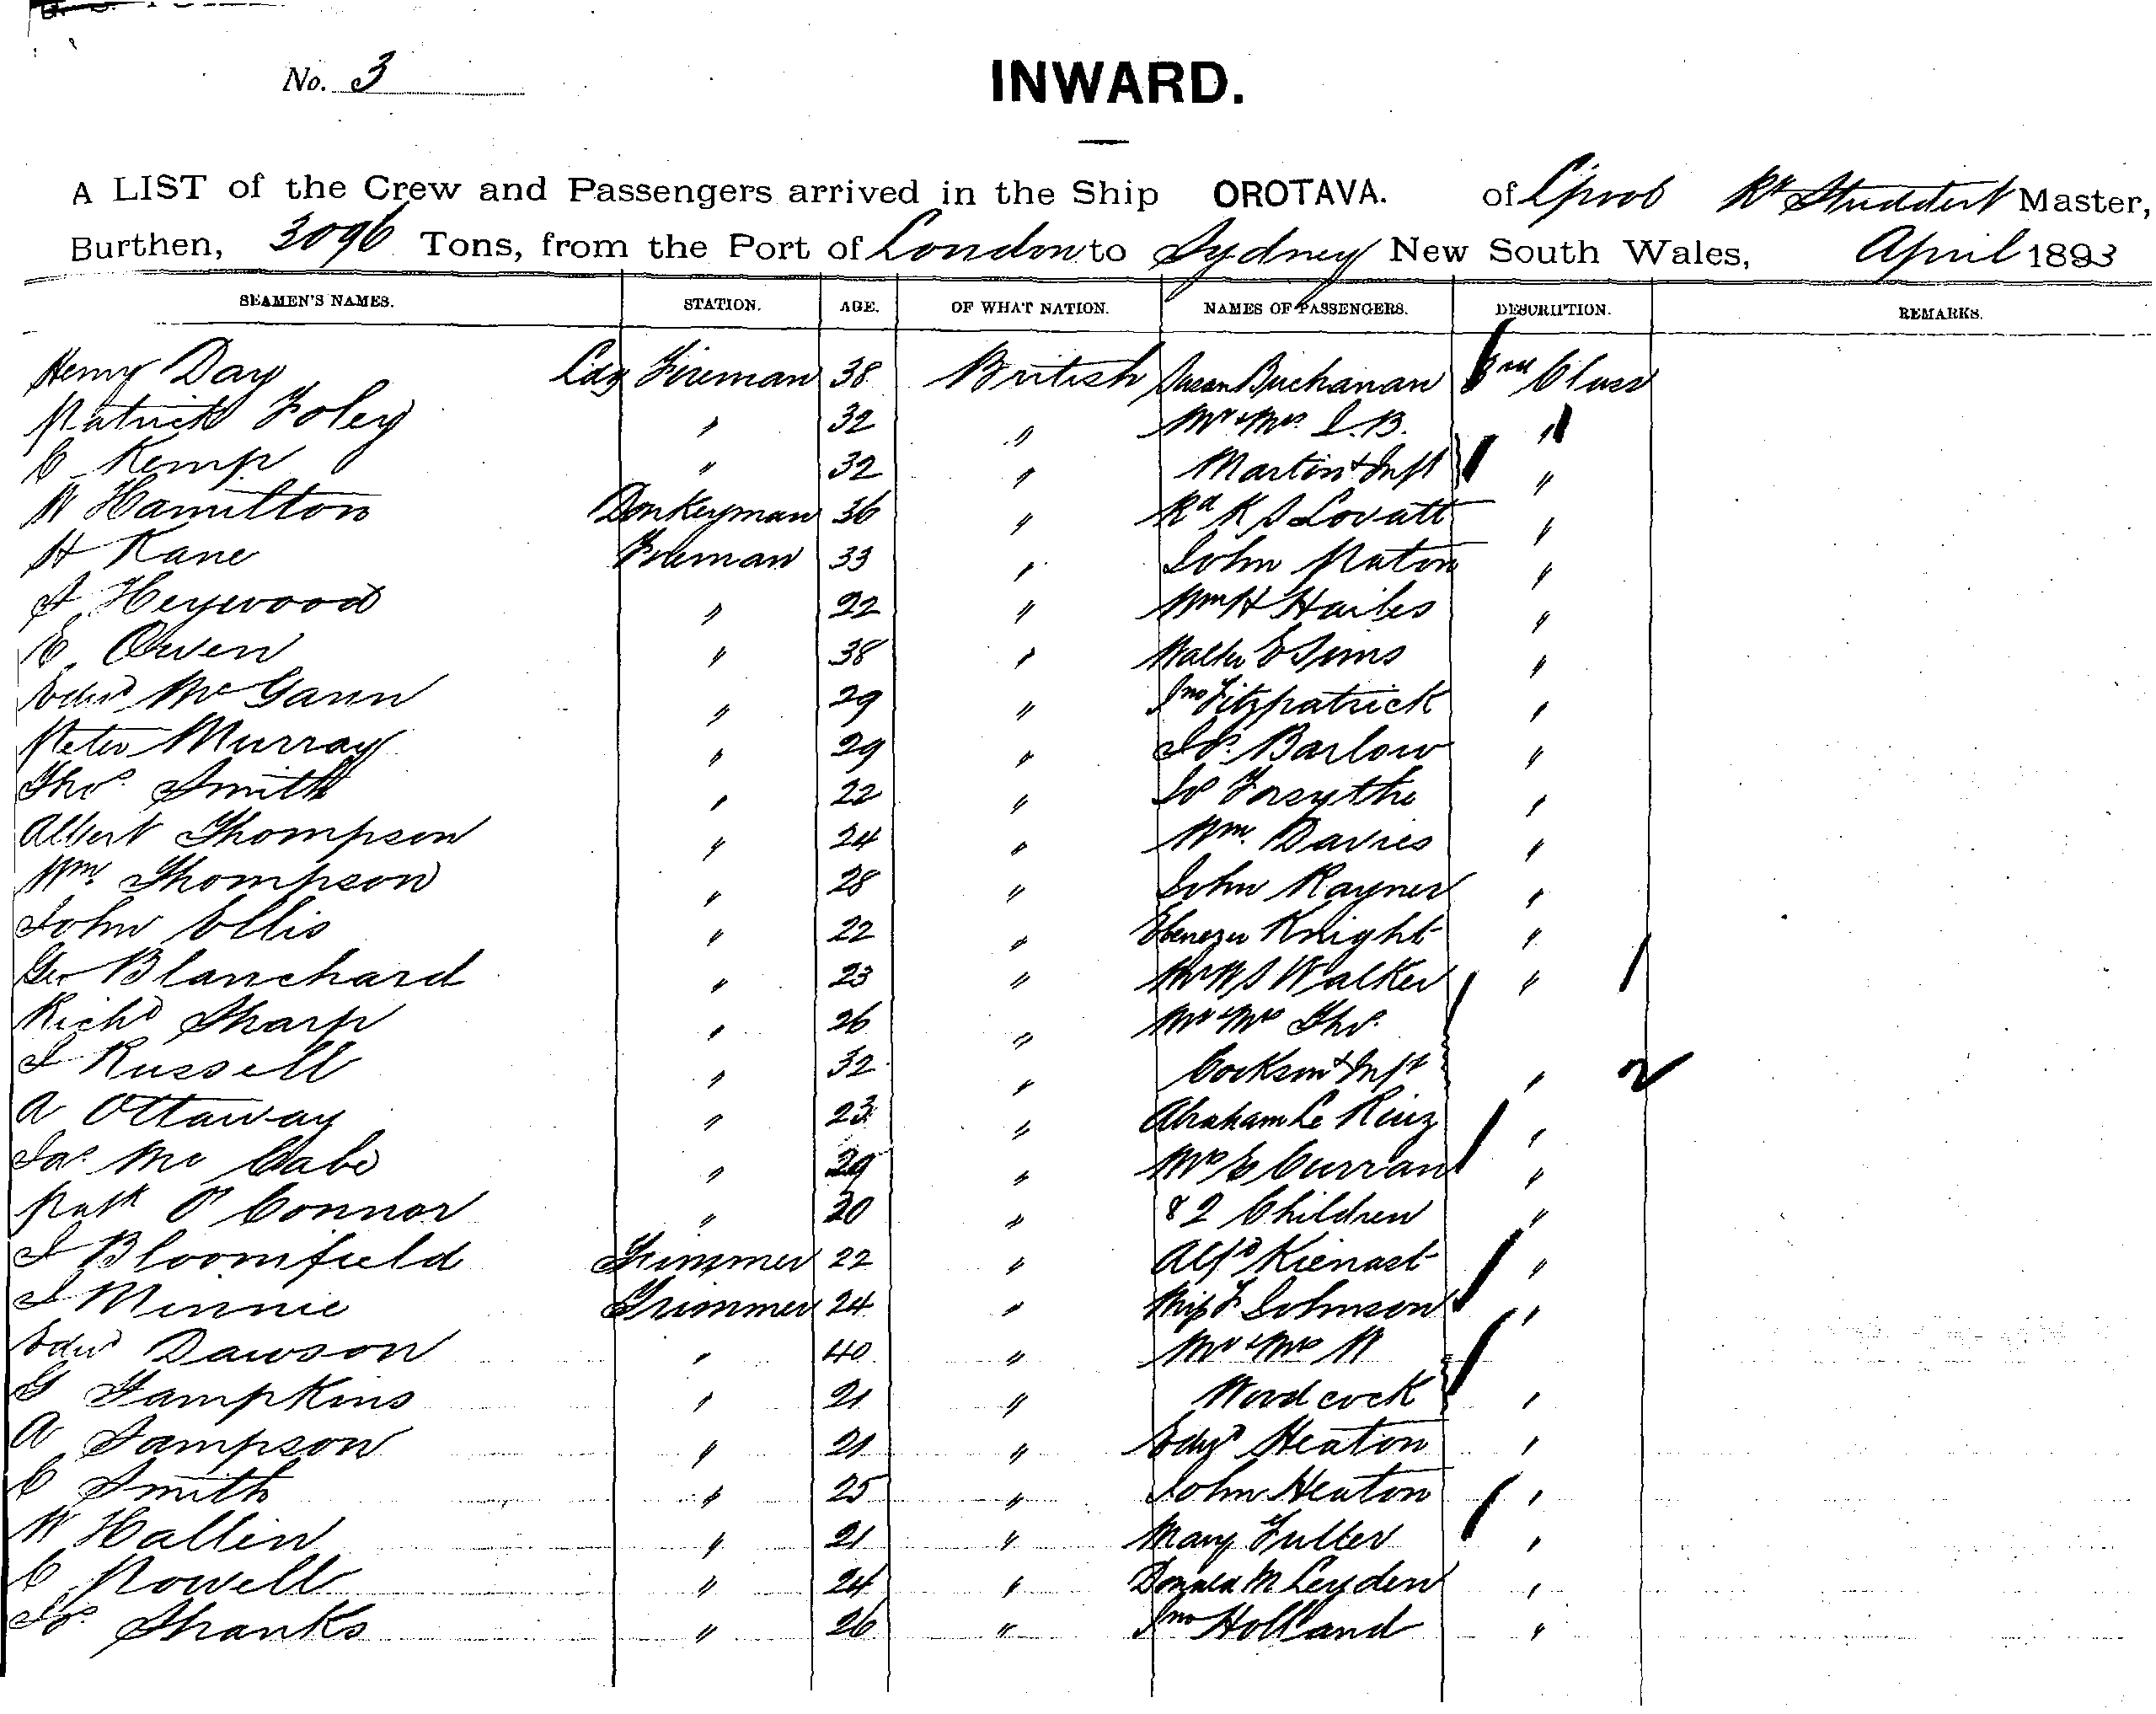 No. 3
INWARD.
A LIST of the Crew and Passengers arrived in the Ship OROTAVA. of L'pool Rt Studdert Master,
Burthen, 3096 Tons, from the Port of London to Sydney New South Wales, April 1893
SEAMEN'S NAMES. STATION. AGE. OF WHAT NATION. NAMES OF PASSENGERS. DESCRIPTION. REMARKS.
Henry Day Ldg Fireman 38 British Susan Buchanan 3rd Class
Patrick Foley " 32 " Mr & Mrs S.B. "
C Kemp " 32 " Martin & Inft "
W Hamilton Donkeyman 36 " Rd K S Lovatt "
H Kane Fireman 33 " John Paton "
J Heywood " 22 " Wm H Hailes "
E Owen " 38 " Walter E Sims "
Edwd McGann " 29 " Jno Fitzpatrick "
Peter Murray " 29 " Jos. Barlow "
Thos Smith " 22 " Jos Forsythe "
Albert Thompson " 24 " Wm. Davies "
Wm. Thompson " 28 " John Rayner "
John Ellis " 22 " Ebenezer Knight "
Geo Blanchard " 23 " Walker " 1
Richd Sharp " 26 " Mr & Mrs Thos.
J Russell " 32 " Cookson & Inft " 2
A Ottaway " 23 " Abraham Le "
Jas. Mc Cabe " 29 " Mrs E Curran "
Patk O'Connor " 30 " & 2 Children "
J Bloomfield Trimmer 22 " Alfd Kienast "
J Minnie Trimmer 24 " Miss F Johnson "
Edwd Dawson " 40 " Mr & Mrs W
G Tampkins " 21 " Woodcock "
A Sampson " 21 " Edwd Heaton "
C Smith " 25 " John Heaton "
W Hallin " 21 " Mary Fuller "
C Powell " 24 " Donald M Leyden "
Jos. Shanks " 26 " Jno Holland "